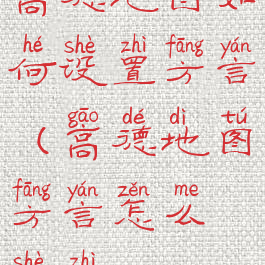 高德地图如
hé shè zhì fāng yán
何设置方言
gāo dé dì tú
（高德地图
fāng yán zěn me
方言怎么
shè zhì